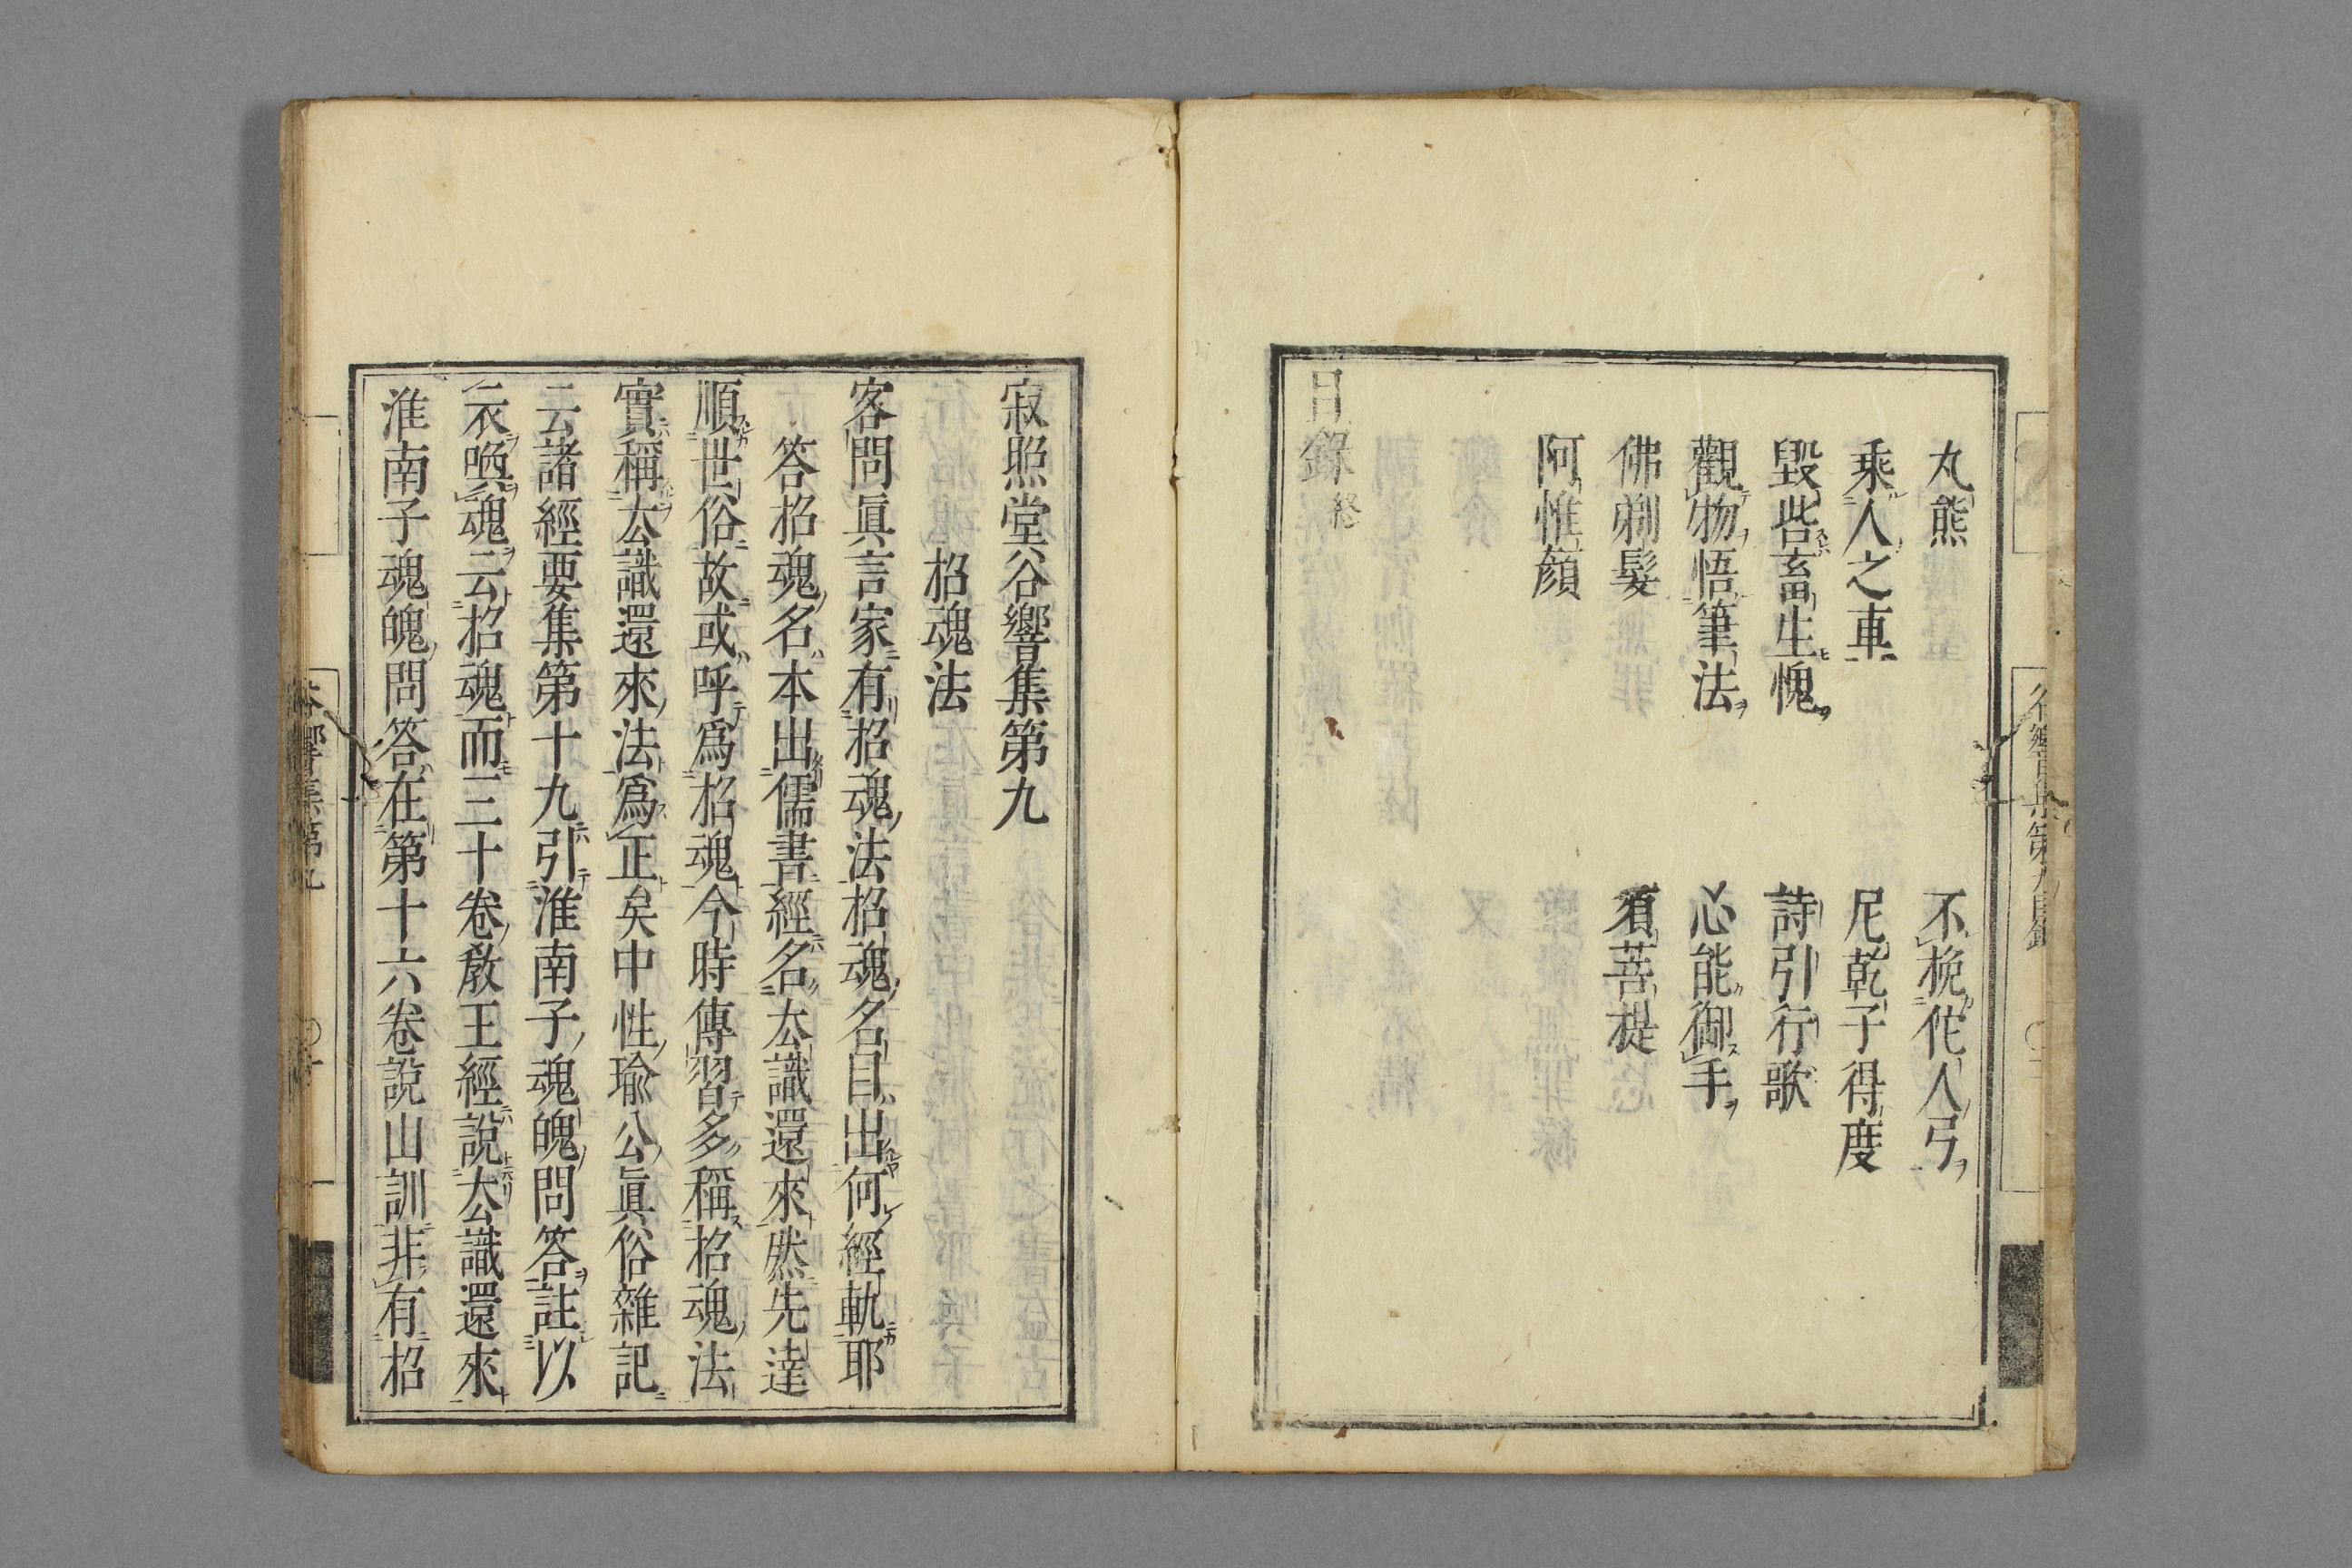 丸熊　不挽佗人弓
乘人之車　尼乾子得度
毀呰畜生愧　詩引行歌
觀物悟筆法　心能御手
佛剃髮　須菩提
阿惟顔
目錄終
寂照堂谷響集第九
招魂法
客問眞言家有招魂法招魂名目出何經軌耶
答招魂名本出儒書經名太識還來然先達
順世俗故或呼爲招魂今時傳習多稱招魂法
實稱太識還來法爲正矣中性瑜公眞俗雜記
云諸經要集第十九引淮南子魂魄問答註以
衣喚魂云招魂而三十卷敎王經說太公識還來
淮南子魂魄問答在第十六卷說山訓非有招
谷響集第九